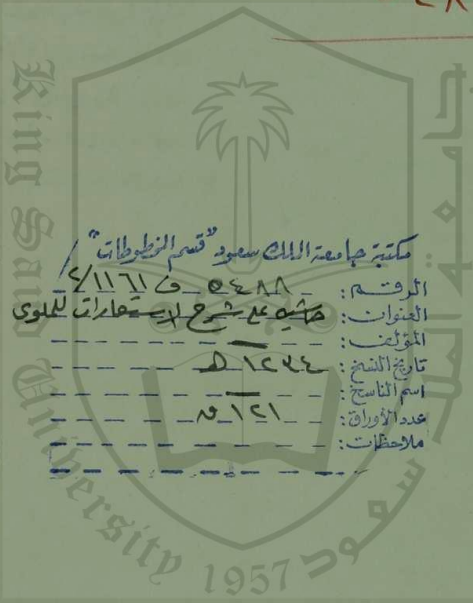 مكتبة جامعة الملك سعود "قسم المخطوطات"
الرقم: ٥٤٨٨ ف ١١٦١/٢
العنوان: حاشية على شرح الاستعارات للملوي
المؤلف: ـــ
تاريخ النسخ: ١٢٣٤ هـ
اسم الناسخ: ـــ
عدد الأوراق: ١٢١ ق
ملاحظات:
King Saud University
1957
جامعة الملك سعود